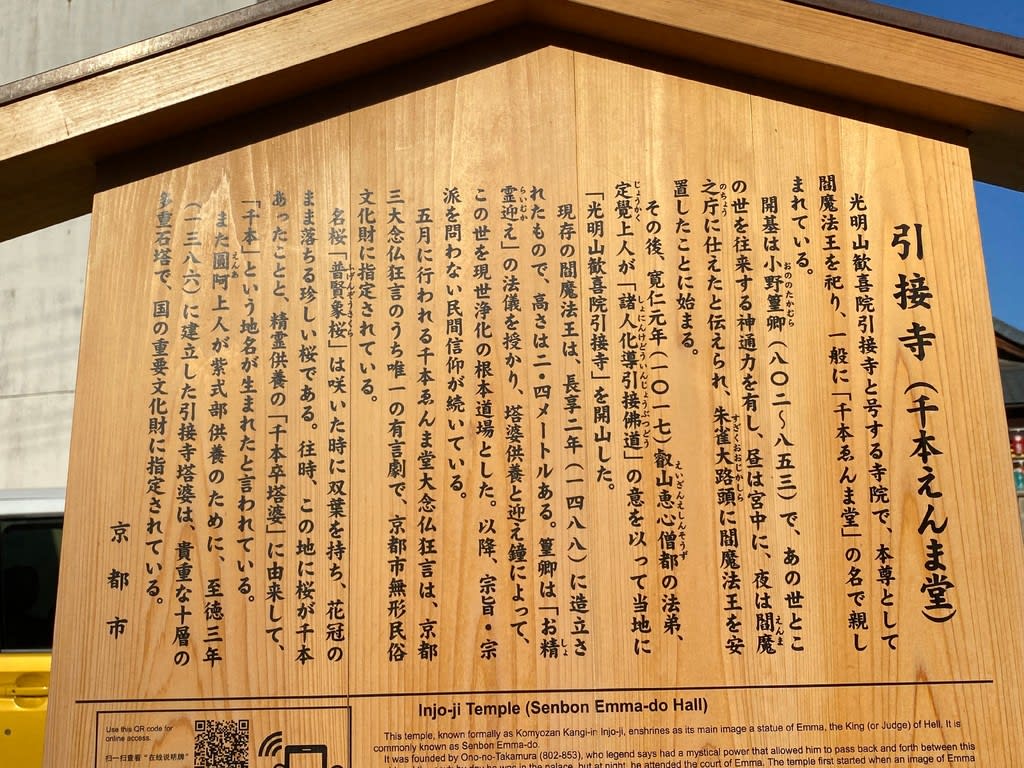 引接寺（千本えんま堂）
光明山歓喜院引接寺と号する寺院で、本尊として
閻魔法王を祀り、一般に「千本ゑんま堂」の名で親し
まれている。
開基は小野篁卿（八〇二～八五三）で、あの世とこ
おののたかむら
の世を往来する神通力を有し、昼は宮中に、夜は閻魔
えんま
之庁に仕えたと伝えられ、朱雀大路頭に閻魔法王を安
のちょう
すざくおおじかしら
置したことに始まる。
その後、寛仁元年（一〇一七）叡山恵心僧都の法弟、
えいざんえしんそうず
定覺上人が「諸人化導引接佛道」の意を以って当地に
じょうかく
しょにんけどういんじょうぶつどう
「光明山歓喜院引接寺」を開山した。
現存の閻魔法王は、長享二年（一四八八）に造立さ
れたもので、高さは二・四メートルある。篁卿は「お精
しょ
霊迎え」の法儀を授かり、塔婆供養と迎え鐘によって、
らいむか
この世を現世浄化の根本道場とした。以降、宗旨・宗
派を問わない民間信仰が続いている。
五月に行われる千本ゑんま堂大念仏狂言は、京都
三大念仏狂言のうち唯一の有言劇で、京都市無形民俗
文化財に指定されている。
名桜「普賢象桜」は咲いた時に双葉を持ち、花冠の
ふげんぞうざくら
まま落ちる珍しい桜である。往時、この地に桜が千本
あったことと、精霊供養の「千本卒塔婆」に由来して、
「千本」という地名が生まれたと言われている。
また圓阿上人が紫式部供養のために、至徳三年
えんあ
（一三八六）に建立した引接寺塔婆は、貴重な十層の
多重石塔で、国の重要文化財に指定されている。
京都市
Use this QR code for
online access.
扫一扫查看"在线说明牌"
Injo-ji Temple (Senbon Emma-do Hall)
This temple, known formally as Komyozan Kangi-in Injo-ji, enshrines as its main image a statue of Emma, the King (or Judge) of Hell. It is
commonly known as Senbon Emma-do.
It was founded by Ono-no-Takamura (802-853), who legend says had a mystical power that allowed him to pass back and forth between this
by day he was in the palace, but at night, he attended the court of Emma. The temple first started when an image of Emma